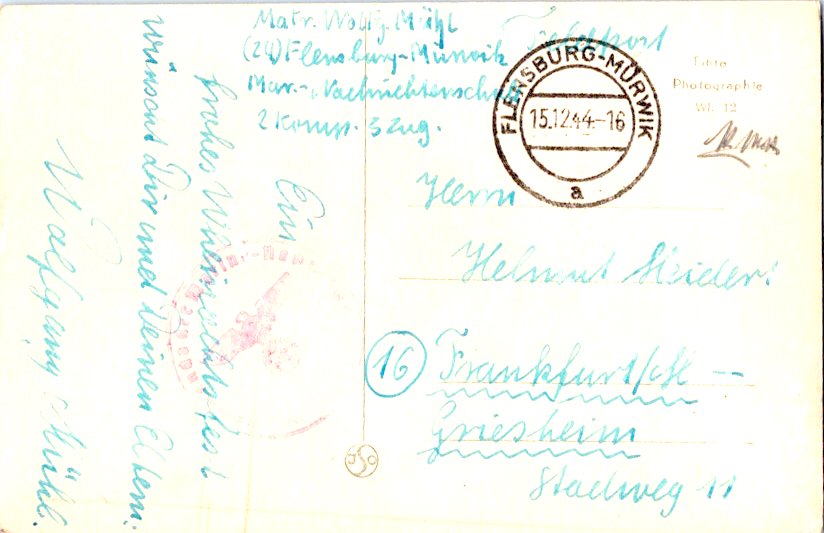 Matr. Wolfg. Mühl
(24) Flensburg-Mürwik
Mar.-Nachrichtenschule
2 Komp. 3 Zug.
Feldpost
FLENSBURG-MÜRWIK
15.12.44.-16
a
Echte
Photographie
Ein
frohes Weihnachtsfest
wünscht Dir und Deinen Eltern:
Wolfgang Mühl.
Herrn
Helmut
(16) Frankfurt/M --
Griesheim
Stadweg 11